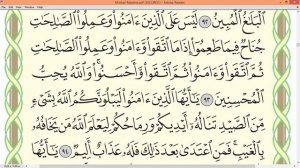 (SECURED) - Adobe Reader
ٱلْبَلَـٰغُ ٱلْمُبِينُ ٩٢ لَيْسَ عَلَى ٱلَّذِينَ ءَامَنُوا۟ وَعَمِلُوا۟ ٱلصَّـٰلِحَـٰتِ
جُنَاحٌ فِيمَا طَعِمُوٓا۟ إِذَا مَا ٱتَّقَوا۟ وَّءَامَنُوا۟ وَعَمِلُوا۟ ٱلصَّـٰلِحَـٰتِ
ثُمَّ ٱتَّقَوا۟ وَّءَامَنُوا۟ ثُمَّ ٱتَّقَوا۟ وَّأَحْسَنُوا۟ ۗ وَٱللَّهُ يُحِبُّ
ٱلْمُحْسِنِينَ ٩٣ يَـٰٓأَيُّهَا ٱلَّذِينَ ءَامَنُوا۟ لَيَبْلُوَنَّكُمُ ٱللَّهُ بِشَىْءٍ
مِّنَ ٱلصَّيْدِ تَنَالُهُۥٓ أَيْدِيكُمْ وَرِمَاحُكُمْ لِيَعْلَمَ ٱللَّهُ مَن يَخَافُهُۥ
بِٱلْغَيْبِ ۚ فَمَنِ ٱعْتَدَىٰ بَعْدَ ذَٰلِكَ فَلَهُۥ عَذَابٌ أَلِيمٌ ٩٤ يَـٰٓأَيُّهَا